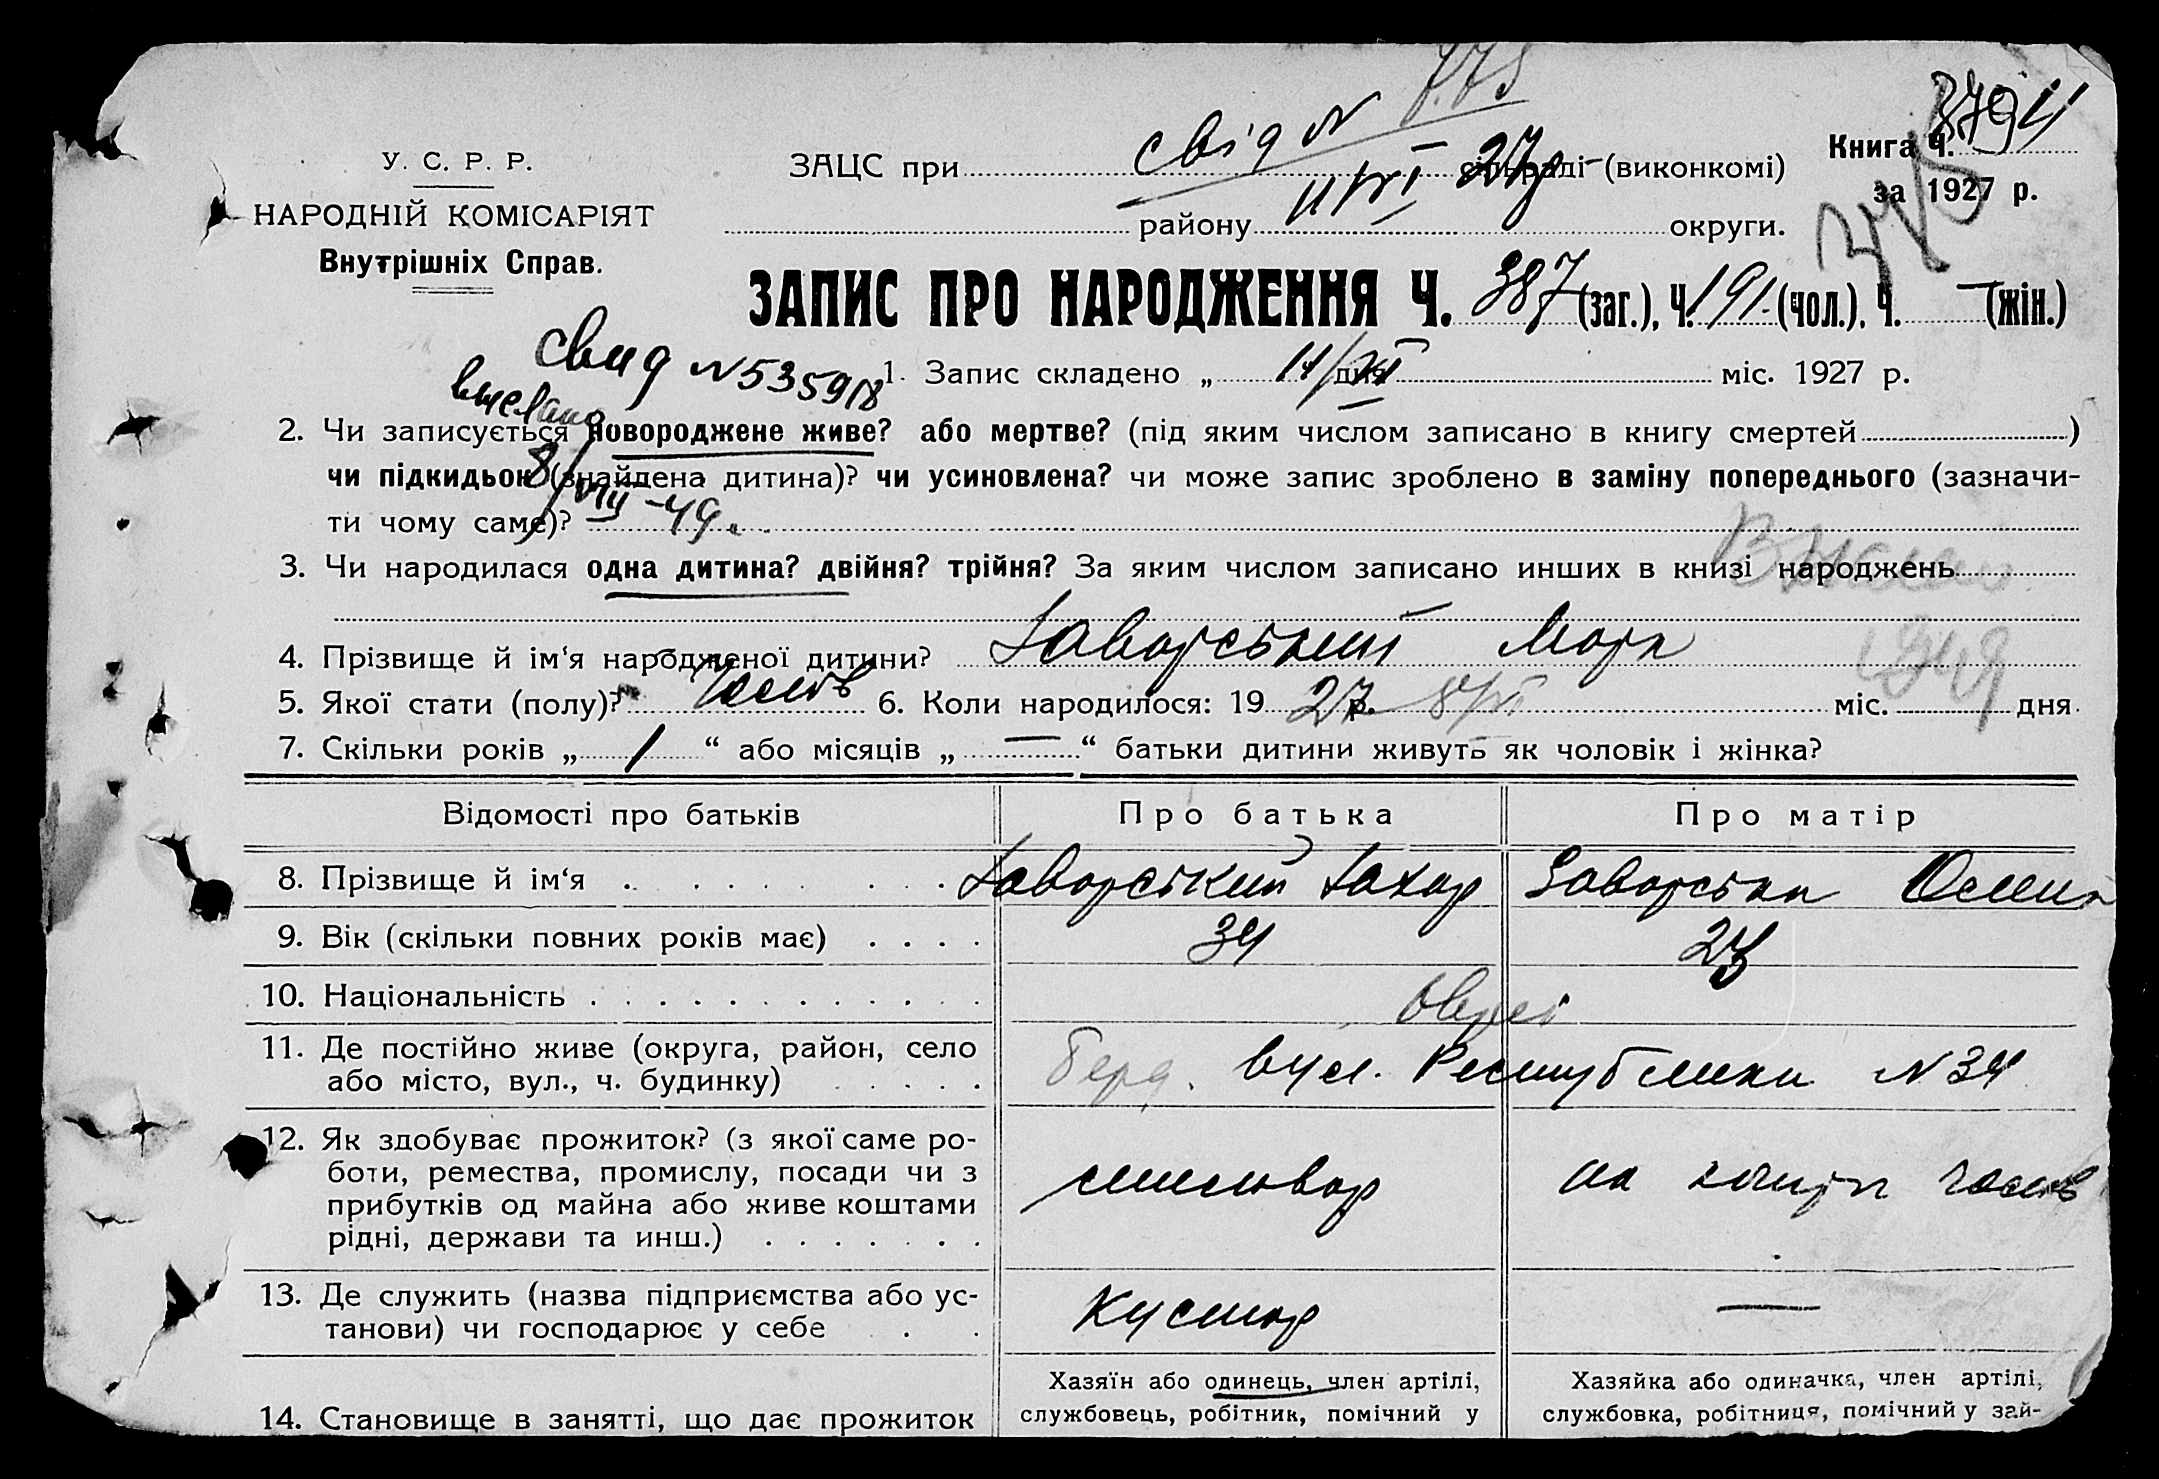 свід N 775
У. С. Р. Р.
ЗАЦС при сільраді (виконкомі)
Книга Ч.
НАРОДНІЙ КОМІСАРІЯТ
за 1927 р.
району округи.
Внутрішніх Справ.
ЗАПИС ПРО НАРОДЖЕННЯ Ч. 387 (заг.), Ч. 191 (чол.), Ч. — (жін.)
свид N 535918
1. Запис складено „ 11/VI дня міс. 1927 р.
выслано
2. Чи записується новороджене живе? або мертве? (під яким числом записано в книгу смертей )
чи підкидьок (знайдена дитина)? чи усиновлена? чи може запис зроблено в заміну попереднього (зазначи-
ти чому саме)?
8/VIII-49.
3. Чи народилася одна дитина? двійня? трійня? За яким числом записано инших в книзі народжень
4. Прізвище й ім'я народженої дитини? Заворський Марк
5. Якої стати (полу)? чолов 6. Коли народилося: 19 27 р. 8/VI міс. дня
1949
7. Скільки років „ 1 “ або місяців „ — “ батьки дитини живуть як чоловік і жінка?
Відомості про батьків Про батька Про матір
8. Прізвище й ім'я Заворський Захар Заворська
9. Вік (скільки повних років має) 34
10. Національність євреї
11. Де постійно живе (округа, район, село
або місто, вул., ч. будинку) Берд. вул. Республіки N 34
12. Як здобуває прожиток? (з якої саме ро-
боти, ремества, промислу, посади чи з
прибутків од майна або живе коштами
рідні, держави та инш.) миловар на кошти чолов
13. Де служить (назва підприємства або ус-
танови) чи господарює у себе Кустар —
14. Становище в занятті, що дає прожиток
Хазяїн або одинець, член артілі,
службовець, робітник, помічний у
Хазяйка або одиначка, член артілі,
службовка, робітниця, помічний у зай-